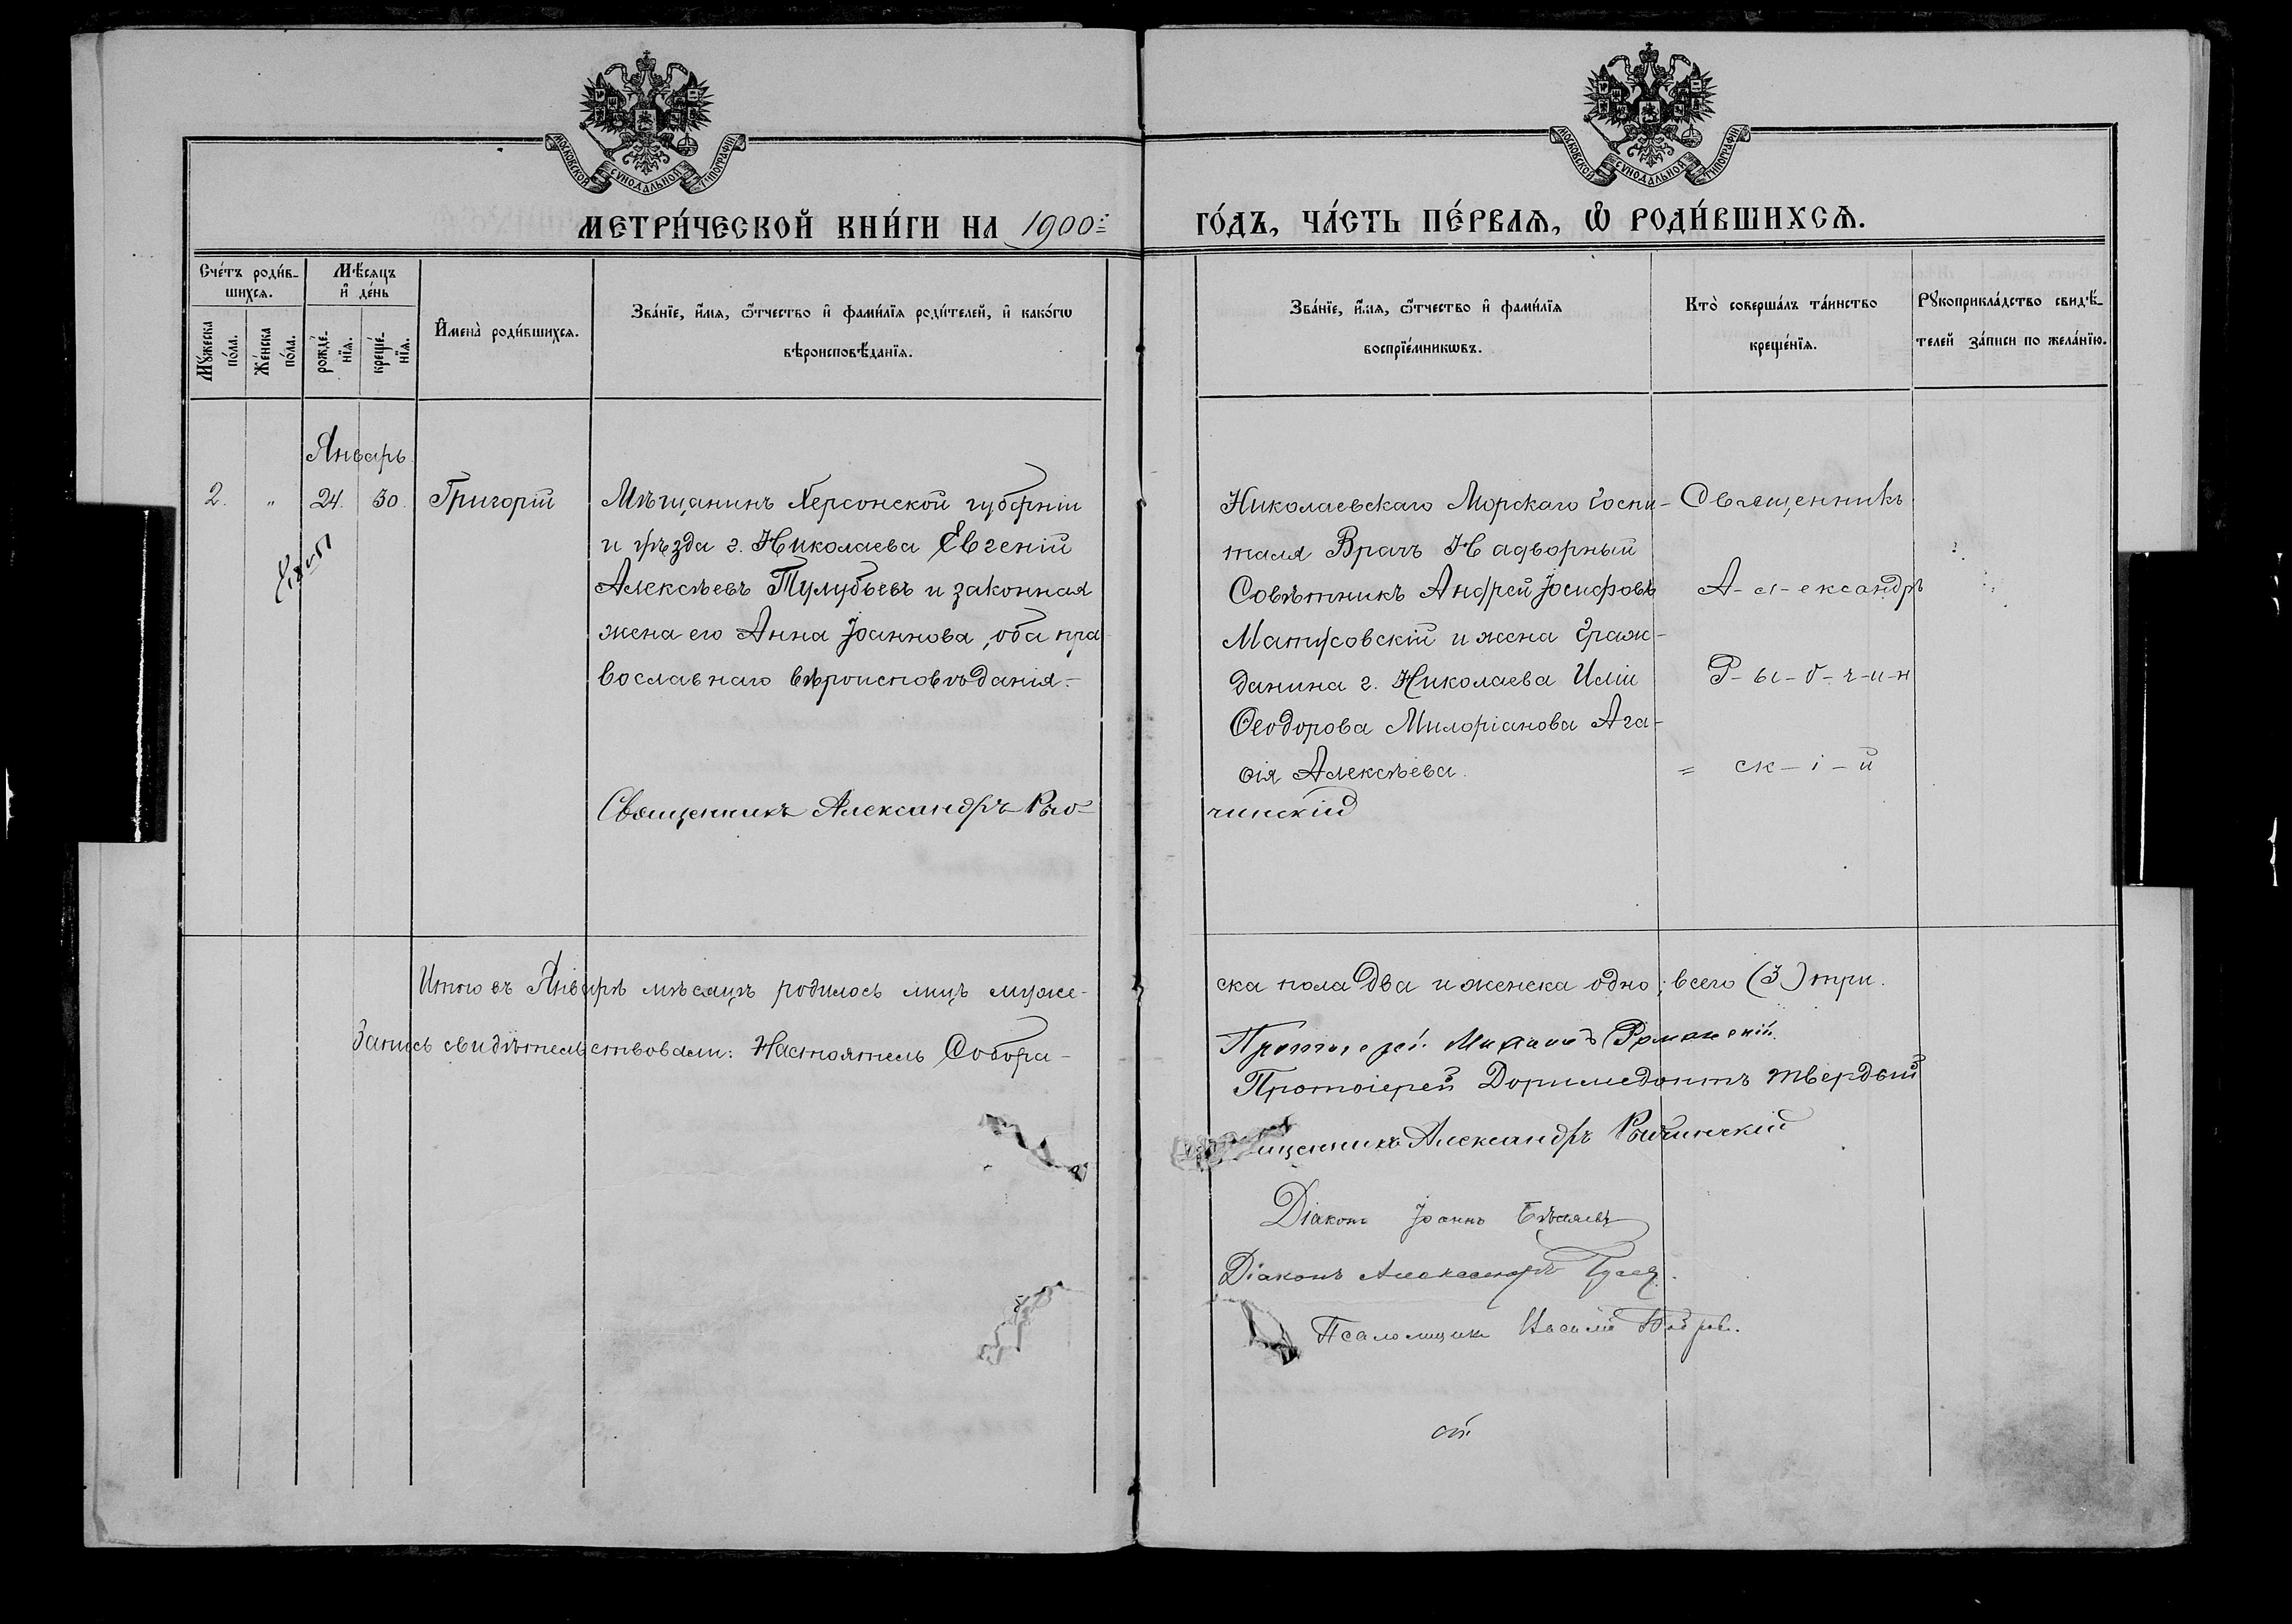 МОСКОВСКОЙ СѴНОДАЛЬНОЙ ТѴПОГРАФІИ
МОСКОВСКОЙ СѴНОДАЛЬНОЙ ТѴПОГРАФІИ
МЕТРИ́ЧЕСКОЙ КНИ́ГИ НА 1900
ГО́ДЪ, ЧА́СТЬ ПЕ́РВАѦ, Ѡ҆ РОДИ́ВШИХСѦ.
Сче́тъ роди́в-
шихсѧ.
Мѣ́сѧцъ
и҆ де́нь
Мꙋ́жеска
по́ла.
Же́нска
по́ла.
рожде́-
нїѧ.
креще́-
нїѧ.
И҆мена̀ роди́вшихсѧ.
Зва́нїе, и҆́мѧ, ѻ҆́тчество и҆ фами́лїѧ роди́телей, и҆ како́гѡ
вѣроисповѣ́данїѧ.
Зва́нїе, и҆́мѧ, ѻ҆́тчество и҆ фами́лїѧ
воспрїе́мникѡвъ.
Кто̀ соверша́лъ та́инство
креще́нїѧ.
Рꙋкоприкла́дство свидѣ́-
телей за́писи по жела́нїю.
Январь.
2. " 24. 30. Григорій
Мѣщанинъ Херсонской губерніи
и уѣзда г. Николаева Евгеній
Алексѣевъ Тулубьевъ и законная
жена его Анна Іоаннова, оба пра
вославнаго вѣроисповѣданія.-
Священникъ Александръ Рыб-
Николаевскаго Морскаго Госпи-
таля Врачъ Надворный
Совѣтникъ Андрей Іосифовъ
Матусовскій и жена Граж-
данина г. Николаева Иліи
Ѳеодорова Милоріанова Ага-
ѳія Алексѣева.
чинскій
Священникъ
А-л-ександръ
Р-ы-б-ч-и-н
= ск-і-й
Итого въ Январѣ мѣсяцѣ родилось лицъ муже-
ска пола два и женска одно; всего (3) три.
Запись свидѣтельствовали: Настоятель Собора-
Протоіерей Михаилъ
Протоіерей Доримедонтъ Твердый
щенникъ Александръ Рыбчинскій
Діаконъ Іоаннъ
Діаконъ Александръ
Псаломщикъ